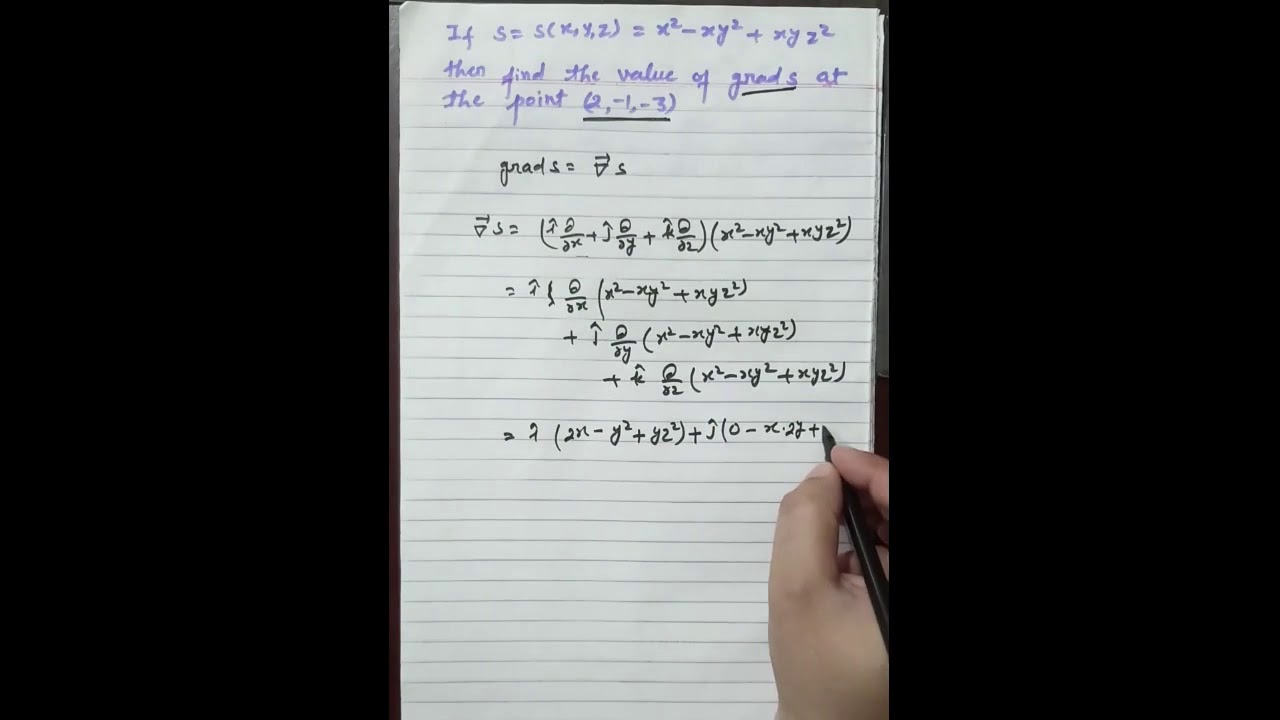 If S = S(x,y,z) = x² - xy² + xyz²
then find the value of grad s at
the point (2,-1,-3)
grad s = ∇⃗ s
∇⃗ s = (î ∂/∂x + ĵ ∂/∂y + k̂ ∂/∂z) (x² - xy² + xyz²)
= î { ∂/∂x (x² - xy² + xyz²)
+ ĵ ∂/∂y (x² - xy² + xyz²)
+ k̂ ∂/∂z (x² - xy² + xyz²)
= î (2x - y² + yz²) + ĵ (0 - x·2y +